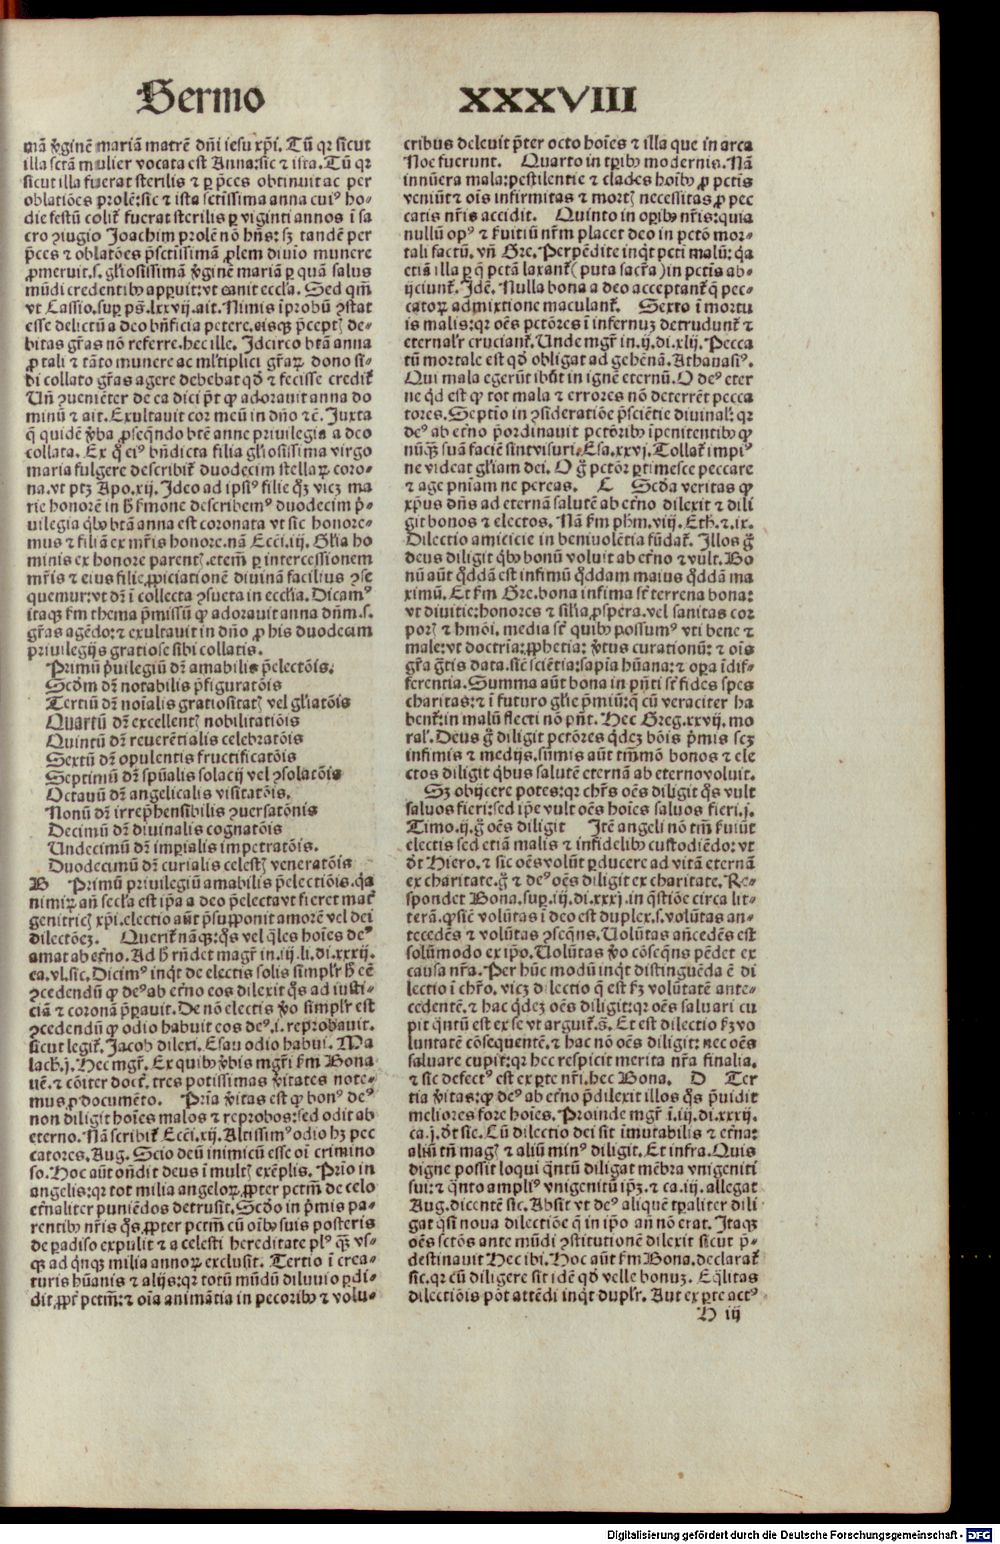 Sermo XXXVIII
mã v̓ginẽ mariã matrẽ dñi iesu xp̃i. Tũ qꝛ sicut
illa sctã mulier vocata est Anna: sic ⁊ ista. Tũ qꝛ
sicut illa fuerat sterilis ⁊ ꝑ p̃ces obtinuit ac per
oblatiões prolẽ: sic ⁊ ista sctissima anna cuiꝰ ho-
die festũ colit᷑ fuerat sterilis ꝑ viginti annos ĩ sa
cro ꝯiugio Joachim prolẽ nõ hñs: sꝫ tandẽ per
p̃ces ⁊ oblatões p̃sctissimã ꝓlem diuĩo munere
ꝓmeruit .s. gl̓iosissimã v̓ginẽ mariã ꝑ quã salus
mũdi credentibꝰ apꝑuit: vt canit eccl̃a. Sed qm̃
vt Cassio. suꝑ ps̃. lxxvij. ait. Nimis ĩprobũ ꝯstat
esse delictũ a deo bñficia petere, eisqꝫ p̃ceptꝭ de-
bitas gr̃as nõ referre. hec ille. Idcirco btã anna
ꝓ tali ⁊ tãto munere ac ml̓tiplici gr̃aꝝ dono si-
bi collato gr̃as agere debebat qð ⁊ fecisse credit᷑
Vñ ꝯueniẽter de ea dici p̃t ꝙ adorauit anna do
minũ ⁊ ait. Exultauit cor meũ in dño ⁊c̃. Juxta
q̃ quidẽ v̓ba ꝓseqñdo btẽ anne priuilegia a deo
collata. Ex q̊ eiꝰ bñdicta filia gl̓iosissima virgo
maria fulgere describit᷑ duodecim stellaꝝ coro-
na. vt ptꝫ Apo. xij. Ideo ad ipsiꝰ filie qꝫ vicꝫ ma
rie honorem in h̓ s̓mone describemꝰ duodecim p̓-
uilegia qᷤbꝰ btã anna est coronata vt sic honore-
mus ⁊ filiã ex mr̃is honore. nã Ecci. iij. Gl̓ia ho
minis ex honore parentꝭ. etem̃ ꝑ intercessionem
mr̃is ⁊ eius filie ꝓpiciationẽ diuinã facilius ꝯse
quemur: vt dr̃ ĩ collecta ꝯsueta in eccl̃ia. Dicamꝰ
itaqꝫ s̓m thema p̃missũ ꝙ adorauit anna dñm .s.
gr̃as agẽdo: ⁊ exultauit in dño ꝓ his duodecim
priuilegijs gratiose sibi collatis.
Primũ p̓uilegiũ dr̃ amabilis p̃electõis.
Scðm dr̃ notabilis p̃figuratõis
Tertiũ dr̃ noĩalis gratiositatꝭ vel gl̓iatõis
Quartũ dr̃ excellentꝭ nobilitatiõis
Quintũ dr̃ reuerẽtialis celebratõis
Sextũ dr̃ opulentis fructificatõis
Septimũ dr̃ spũalis solacij vel ꝯsolatõis
Octauũ dr̃ angelicalis visitatõis.
Nonũ dr̃ irrep̃hensibilis ꝯuersatõnis
Decimũ dr̃ diuinalis cognatõis
Undecimũ dr̃ imꝑialis impetratõis.
Duodecimũ dr̃ curialis celestꝭ veneratõis
B Primũ priuilegiũ amabilis p̃electiõis. q̃a
nimiꝝ añ secl̃a est ip̃a a deo p̃electa vt fieret mat᷑
genitricꝭ xp̃i. electio aũt p̃supponit amorẽ vel dei
dilectõeꝫ. Querit᷑ nãqꝫ: qᷤs vel q̃les hoĩes deꝰ
amat ab et̓no. Ad h̓ rñdet magr̃ in. iij. li. di. xxxij.
ca. vl. sic. Dicimꝰ inqͭ de electis solis simpl̓r h̓ eẽ
ꝯcedendũ ꝙ deꝰ ab et̓no eos dilexit qᷤs ad iusti-
ciã ⁊ coronã p̃parauit. De nõ electis v̓o simpl̓r est
ꝯcedendũ ꝙ odio habuit eos deꝰ .i. reprobauit.
sicut legit᷑. Jacob dilexi. Esau odio habui. Ma
lach. j. Hec mgr̃. Ex quibꝰ v̓bis mgr̃i s̓m Bona
uẽ. ⁊ cõiter doct̃. tres potissimas v̓itates note-
mus ꝓ documẽto. Pria v̓itas est ꝙ bonꝰ deꝰ
non diligit hoĩes malos ⁊ reprobos: sed odit ab
eterno. Nã scribit᷑ Ecci. xij. Altissimꝰ odio hꝫ pec
catores. Aug. Scio deũ inimicũ esse oĩ crimino
so. Hoc aũt oñdit deus ĩ multꝭ exẽplis. Prĩo in
angelis: qꝛ tot milia angeloꝝ ꝓpter pctm̃ de celo
et̓naliter puniẽdos detrusit. Scðo in p̃mis pa-
rentibꝰ nr̃is qᷤs ꝓpter pctm̃ cũ oĩbꝰ suis posteris
de ꝑadiso expulit ⁊ a celesti hereditate plꝰ qᷓꝫ vs-
qꝫ ad qᷤnqꝫ milia annoꝝ exclusit. Tertio ĩ crea-
turis hũanis ⁊ alijs: qꝛ totũ mũdũ diluuio ꝑdi-
dit ꝓpt̓ pctm̃: ⁊ oĩa animãtia in pecoribꝰ ⁊ volu-
cribus deleuit p̃ter octo hoĩes ⁊ illa que in arca
Noe fuerunt. Quarto in tꝑibꝰ modernis. Nã
innũera mala: pestilentie ⁊ clades hoĩbꝰ ꝓ pctis
veniũt ⁊ oĩs infirmitas ⁊ mortꝭ necessitas ꝓ pec
catis nr̃is accidit. Quinto in oꝑibꝰ nr̃is: quia
nullũ opꝰ ⁊ s̓uitiũ nr̃m placet deo in pctõ mor-
tali factũ. vñ Gre. Perpẽdite inqͭ pcti malũ: q̃a
etiã illa ꝑ q̃ pctã laxant᷑ (puta sacr̃a) in pctis ab-
ijciunt᷑. Idẽ. Nulla bona a deo acceptant᷑ q̃ pec-
catoꝝ admixtione maculant᷑. Sexto ĩ mortu
is malis: qꝛ oẽs pctõres ĩ infernuꝫ detrudunt᷑ ⁊
eternal̓r cruciant᷑. Unde mgr̃ in. ij. di. xlij. Pecca
tũ mortale est qð obligat ad gehẽnã. Athanasiꝰ.
Qui mala egerũt ibũt in ignẽ eternũ. O deꝰ eter
ne qͥd est ꝙ tot mala ⁊ errores nõ deterrẽt pecca
tores. Septĩo in ꝯsideratiõe p̃sciẽtie diuinal: qꝛ
deꝰ ab et̓no p̃ordinauit pctõribꝰ ĩpenitentibꝰ ꝙ
nũqᷓꝫ suã faciẽ sint visuri. Esa. xxvj. Tollat᷑ impiꝰ
ne videat gl̓iam dei. O g̊ pctõr ꝑtimesce peccare
⁊ age pñiam ne pereas. C Scðа veritas ꝙ
xp̃us dñs ad eternã salutẽ ab et̓no dilexit ⁊ dili
git bonos ⁊ electos. Nã s̓m ph̓m. viij. Eth. ⁊. ix.
Dilectio amicicie in beniuolẽtia fũdat᷑. Illos g̊
deus diligit qᷤbꝰ bonũ voluit ab et̓no ⁊ vult. Bo
nũ aũt qͦddã est infimũ qͦddam maius qͦddã ma
ximũ. Et s̓m Gre. bona infima st̃ terrena bona:
vt diuitie: honores ⁊ sil̓ia ꝓspera. vel sanitas cor
porꝭ ⁊ h̓mõi. media st̃ quibꝰ possumꝰ vti bene ⁊
male: vt doctrĩa: ꝓphetia: v̓tus curationũ: ⁊ oĩs
gr̃a gr̃tis data. sic̃ sciẽtia: sapĩa hũana: ⁊ oꝑa ĩdif-
ferentia. Summa aũt bona in pñti st̃ fides spes
charitas: ⁊ ĩ futuro gl̓ie p̃miũ: q̃ cũ veraciter ha
bent᷑: in malũ flecti nõ pñt. Hec Greg. xxvij. mo
ral. Deus g̊ diligit pctõres qͥdeꝫ bõis p̃mis scꝫ
infimis ⁊ medijs. sũmis aũt tm̃mõ bonos ⁊ ele
ctos diligit qᷤbus salutẽ eternã ab eterno voluit.
Sꝫ obijcere potes: qꝛ chr̃s oẽs diligit qᷤs vult
saluos fieri: sed ip̃e vult oẽs hoĩes saluos fieri. j.
Timo. ij. g̊ oẽs diligit Itẽ angeli nõ tm̃ s̓uiũt
electis sed etiã malis ⁊ infidelibꝰ custodiẽdo: vt
dt̃ Hiero. ⁊ sic oẽs volũt ꝑducere ad vitã eternã
ex charitate. g̊ ⁊ deꝰ oẽs diligit ex charitate. Re-
spondet Bona. suꝑ. iij. di. xxxj. in qͣstiõe circa lit-
terã. ꝙ sic̃ volũtas ĩ deo est duplex .s. volũtas an-
tecedẽs ⁊ volũtas ꝯseqñs. Uolũtas añcedẽs est
solũmodo ex ip̃o. Uolũtas v̓o cõseqñs pẽdet ex
causa nr̃a. Per hũc modũ inqͭ distinguẽda ẽ di
lectio ĩ chr̃o. vicꝫ dilectio q̃ est s̓ꝫ volũtatẽ ante-
cedentẽ. ⁊ hac qͥdeꝫ oẽs diligit: qꝛ oẽs saluari cu
pit qñtũ est ex se vt arguit᷑. s̃. Et est dilectio s̓ꝫ vo
luntatẽ cõsequentẽ. ⁊ hac nõ oẽs diligit: nec oẽs
saluare cupit: qꝛ hec respicit merita nr̃a finalia.
⁊ sic defectꝰ est ex ꝑte nr̃i. hec Bona. D Ter
tia v̓itas: ꝙ deꝰ ab et̓no p̃dilexit illos qᷤs p̃uidit
meliores fore hoĩes. Proinde mgr̃ ĩ. iij. di. xxxij.
ca. j. dt̃ sic. Cũ dilectio dei sit ĩmutabilis ⁊ et̓na:
aliũ tñ magꝭ ⁊ aliũ minꝰ diligit. Et infra. Quis
digne possit loqui qñtũ diligat mẽbra vnigeniti
sui: ⁊ qñto ampliꝰ vnigenitũ ip̃ꝫ. ⁊ ca. iij. allegat
Aug. dicentẽ sic. Absit vt deꝰ aliquẽ tꝑaliter dili
gat qͣsi noua dilectiõe q̃ in ip̃o añ nõ erat. Itaqꝫ
oẽs sctõs ante mũdi ꝯstitutionẽ dilexit sicut p̃-
destinauit Hec ibi. Hoc aũt s̓m Bona. declarat᷑
sic. qꝛ cũ diligere sit idẽ qð velle bonuꝫ. Eqͣlitas
dilectiõis põt attẽdi inqͭ dupl̓r. Aut ex ꝑte actꝰ
H iij
Digitalisierung gefördert durch die Deutsche Forschungsgemeinschaft - DFG